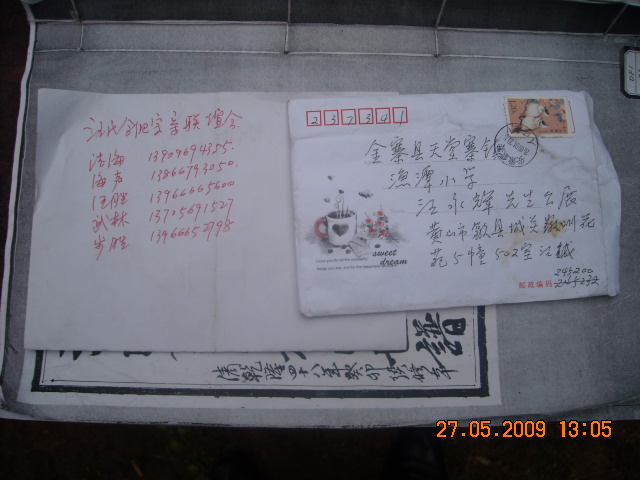 汪氏合肥宗亲联谊会
清海 13909694355.
海声 13866793050.
汪胜 13966665600
武林 13705691527
步胜 13966652798
237341
金寨县天堂寨镇
渔潭小学
汪永辉先生台展
黄山市歙县城关
苑5幢502室汪
sweet
dream
245200
邮政编码
譜
清乾隆四十八年癸卯
27.05.2009 13:05